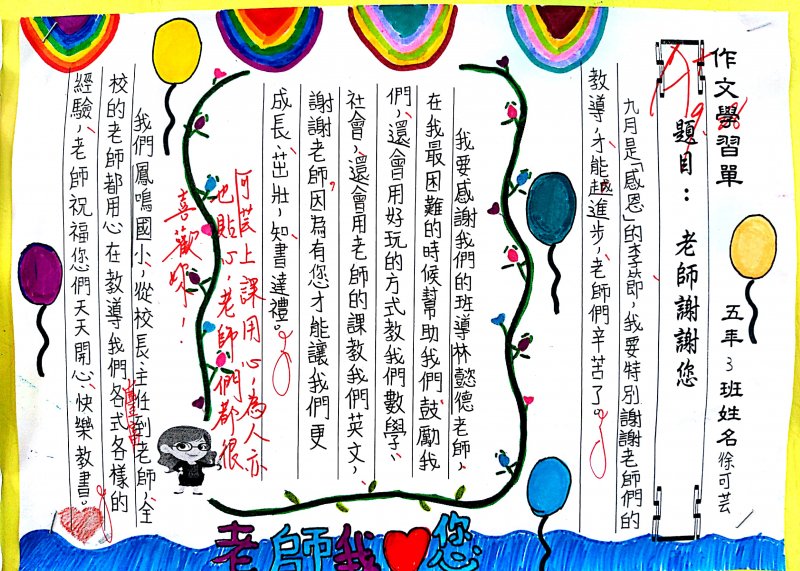 作文學習單
五年3班姓名徐可芸
題目：老師謝謝您
A+
九月是「感恩」的季節，我要特別謝謝老師們的
教導，才能越進步，老師們辛苦了。
我要感謝我們的班導林懿德老師，
在我最困難的時候幫助我們，鼓勵我
們，還會用好玩的方式教我們數學、
社會，還會用老師的課教我們英文，
謝謝老師，因為有您才能讓我們更
成長、茁壯，知書達禮。
我們鳳鳴國小，從校長、主任到老師，全
校的老師都用心在教導我們各式各樣的
豐富
經驗，老師祝福您們天天開心、快樂教書。
可芸上課用心，為人亦
也貼心，老師們都很
喜歡妳！
老師我您